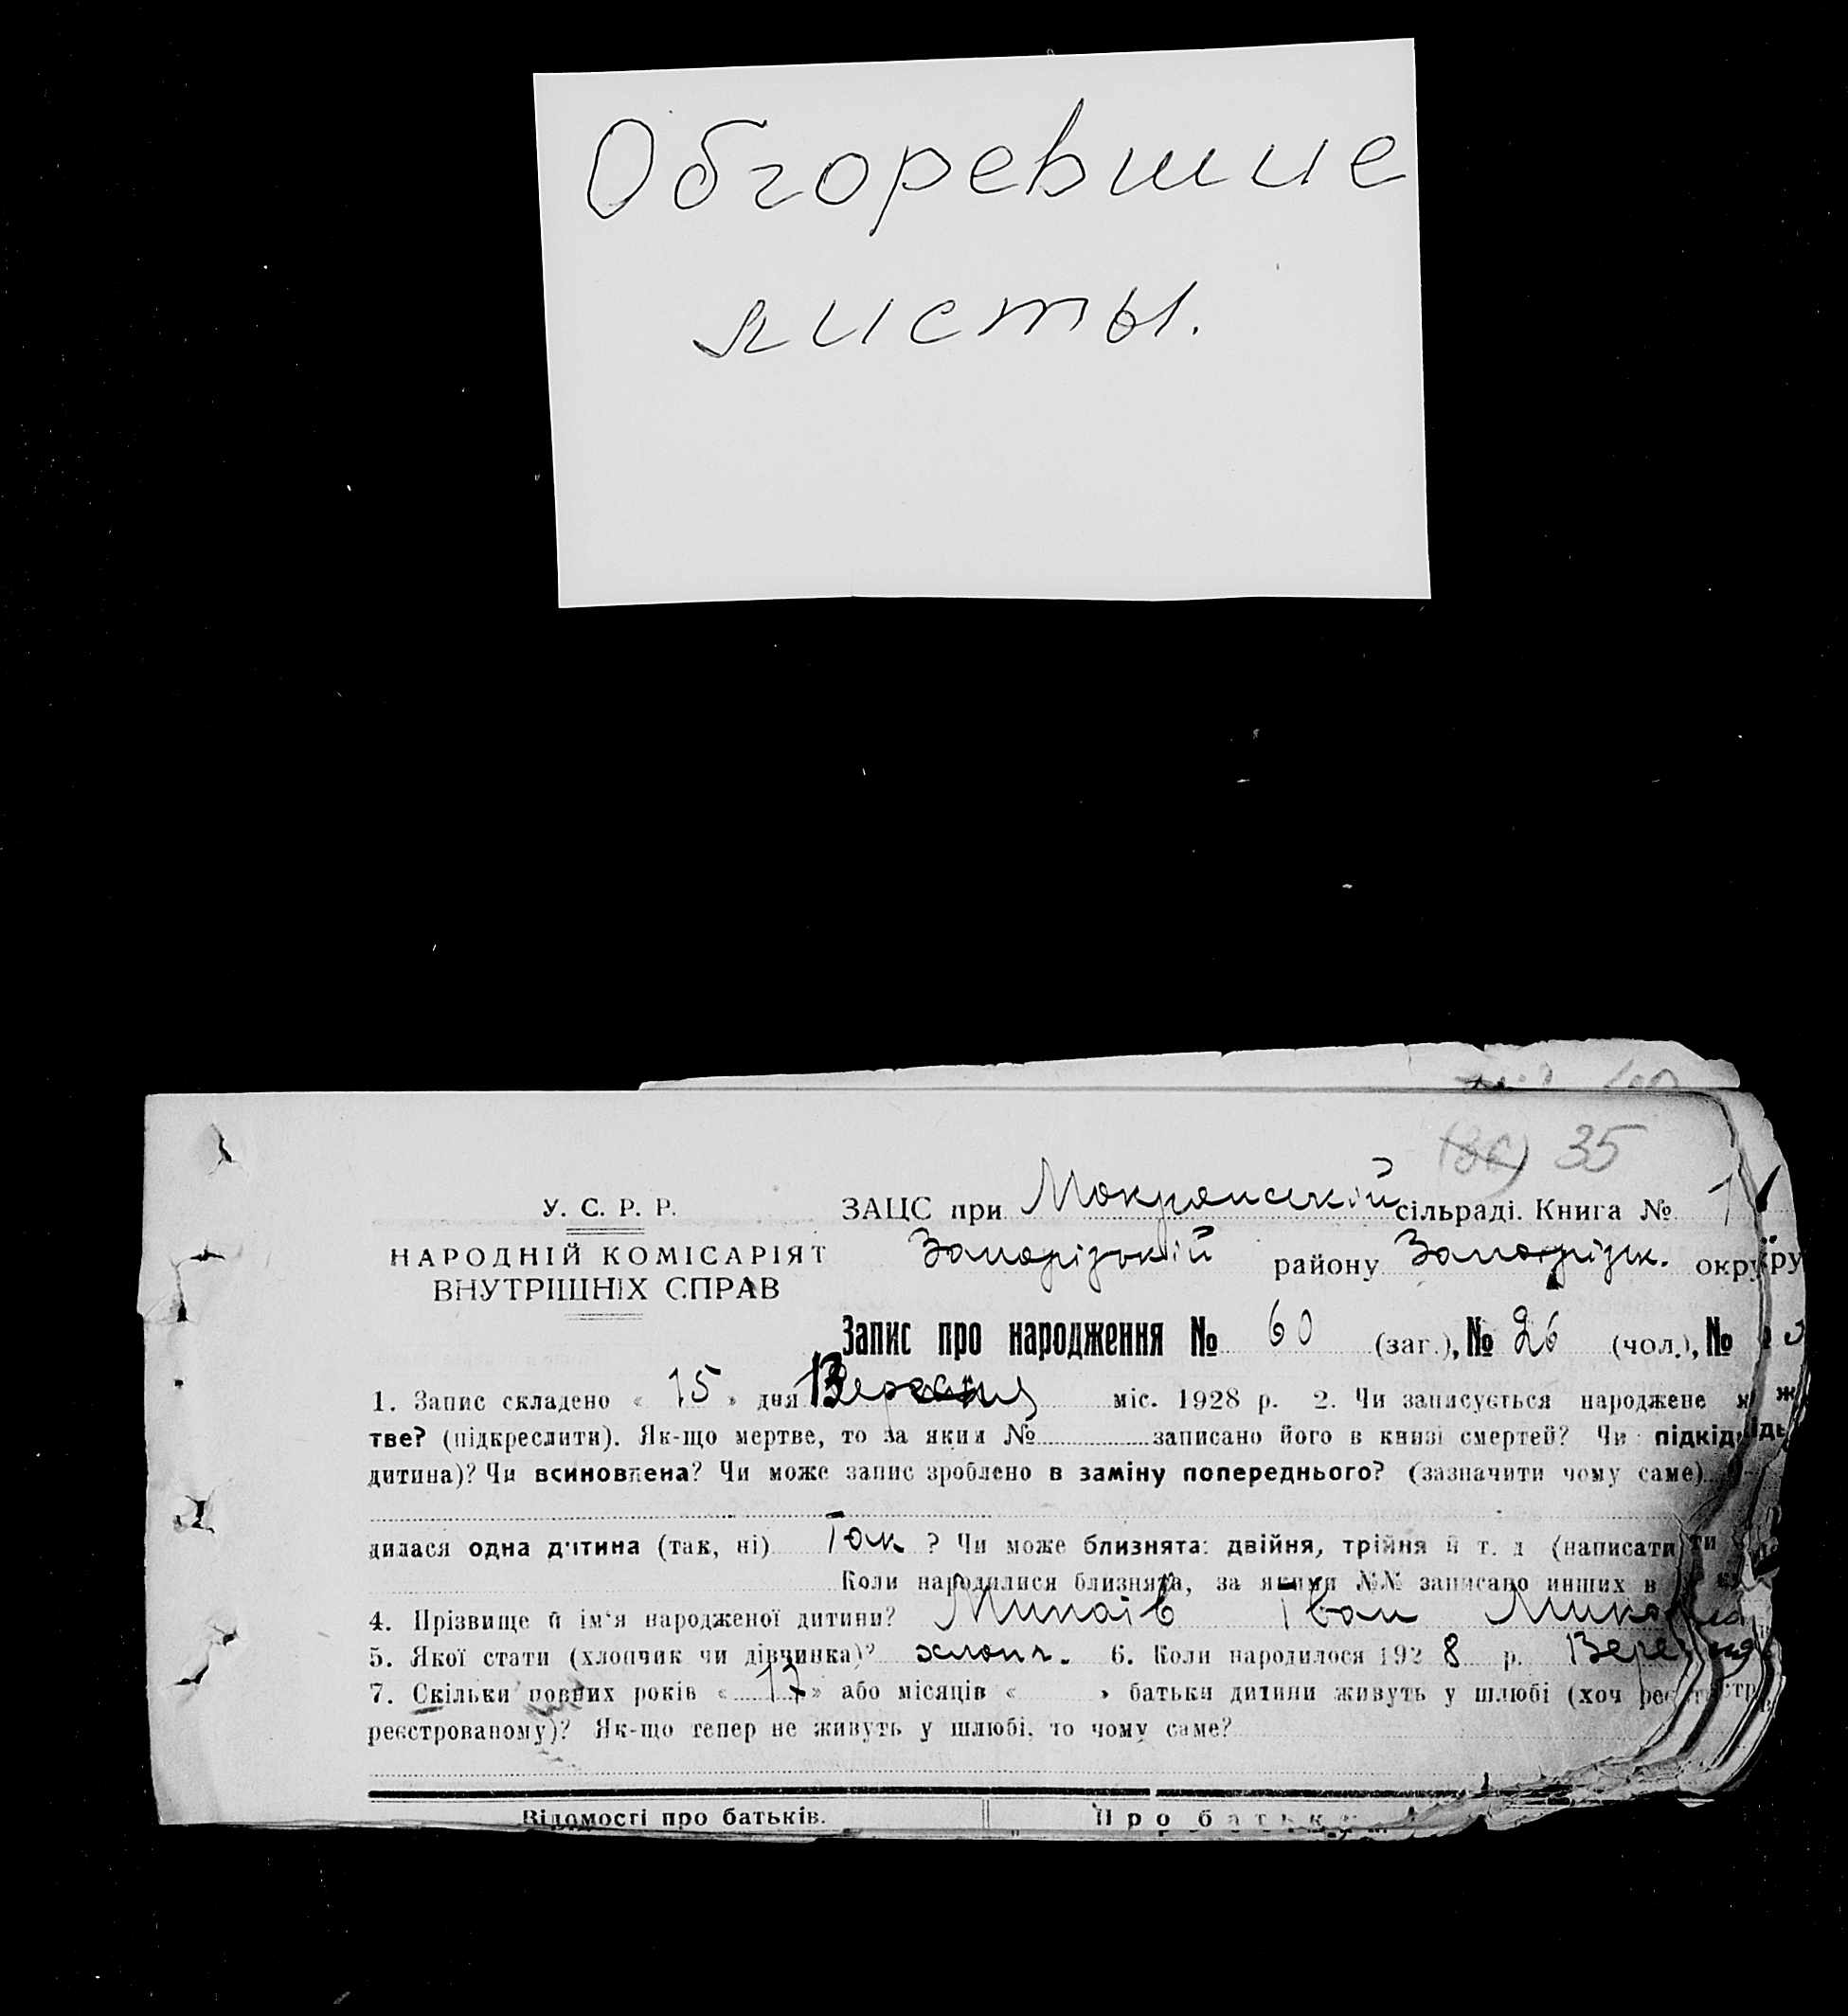 Обгоревшие
листы.
35
У. С. Р. Р.
НАРОДНІЙ КОМІСАРІЯТ
ВНУТРІШНІХ СПРАВ
ЗАЦС при Мокрянській сільраді. Книга № 1
Запорізькій району Запорізьк. окру
Запис про народження № 60 (заг.), № 26 (чол.), №
1. Запис складено « 15 » дня Вересня міс. 1928 р. 2. Чи записується народжене
тве? (підкреслити). Як-що мертве, то за яким № записано його в книзі смертей? Чи підкид
дитина)? Чи всиновлена? Чи може запис зроблено в заміну попереднього? (зазначити чому саме)
дилася одна дитина (так, ні) Так ? Чи може близнята: двійня, трійня й т. д (написати
Коли народилися близнята, за якими №№ записано инших в
4. Прізвище й ім'я народженої дитини? Минаїв Іван
5. Якої стати (хлопчик чи дівчинка)? хлопч. 6. Коли народилося 192 8 р. Вересня
7. Скільки повних років « 17 » або місяців « » батьки дитини живуть у шлюбі (хоч
реєстрованому)? Як-що тепер не живуть у шлюбі, то чому саме?
Відомості про батьків.
Про батька